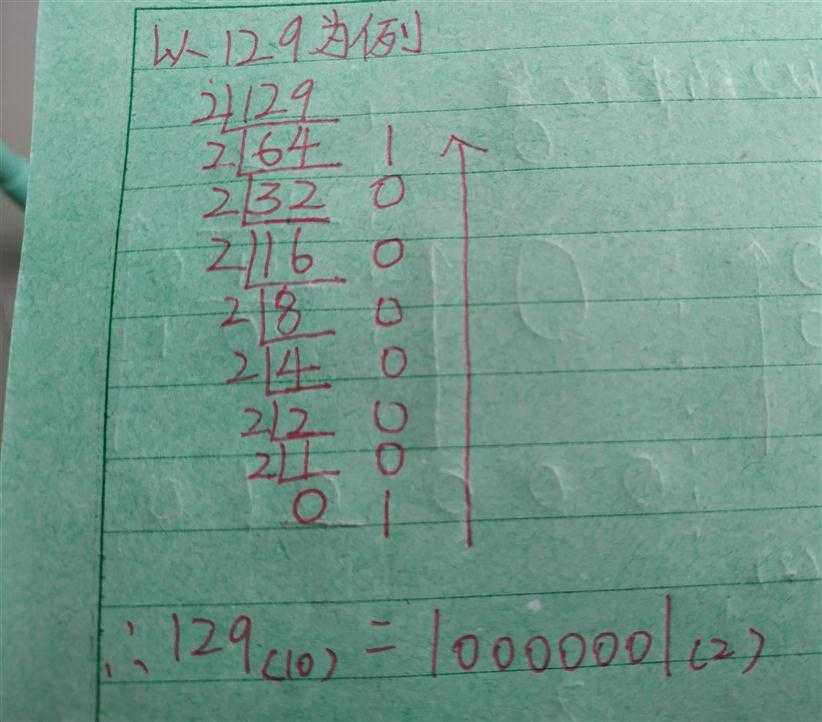 以129为例
2|129
2|64 1
2|32 0
2|16 0
2|8 0
2|4 0
2|2 0
2|1 0
0 1
∴129(10)=10000001(2)